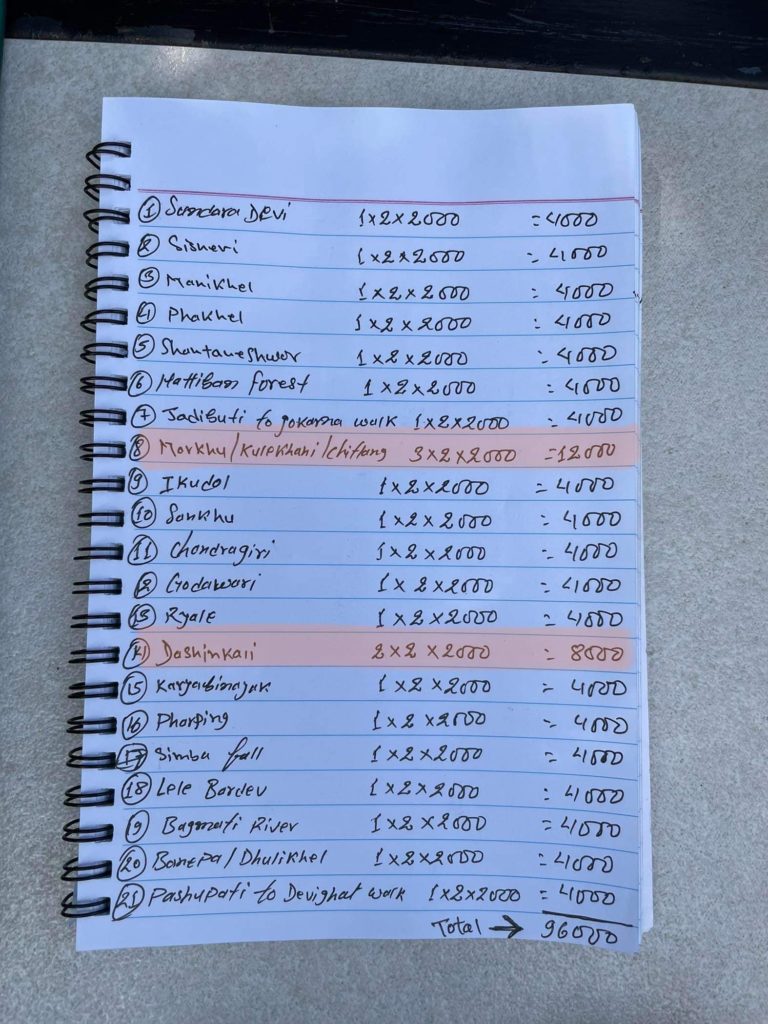 ① Sundara Devi 1×2×2000 = 4000
② Sisneri 1×2×2000 = 4000
③ Manikhel 1×2×2000 = 4000
④ Phakhel 1×2×2000 = 4000
⑤ Shantaneshwor 1×2×2000 = 4000
⑥ Hattiban forest 1×2×2000 = 4000
⑦ Jadibuti to gokarna walk 1×2×2000 = 4000
⑧ Morkhu/Kulekhani/chitlang 3×2×2000 = 12000
⑨ Ikudol 1×2×2000 = 4000
⑩ Sankhu 1×2×2000 = 4000
⑪ Chandragiri 1×2×2000 = 4000
⑫ Godawari 1×2×2000 = 4000
⑬ Ryale 1×2×2000 = 4000
⑭ Dashinkali 2×2×2000 = 8000
⑮ Karyabinayak 1×2×2000 = 4000
⑯ Pharping 1×2×2000 = 4000
⑰ Simba fall 1×2×2000 = 4000
⑱ Lele Bardev 1×2×2000 = 4000
⑲ Bagmati River 1×2×2000 = 4000
⑳ Banepa/Dhulikhel 1×2×2000 = 4000
㉑ Pashupati to Devighat walk 1×2×2000 = 4000
Total → 96000